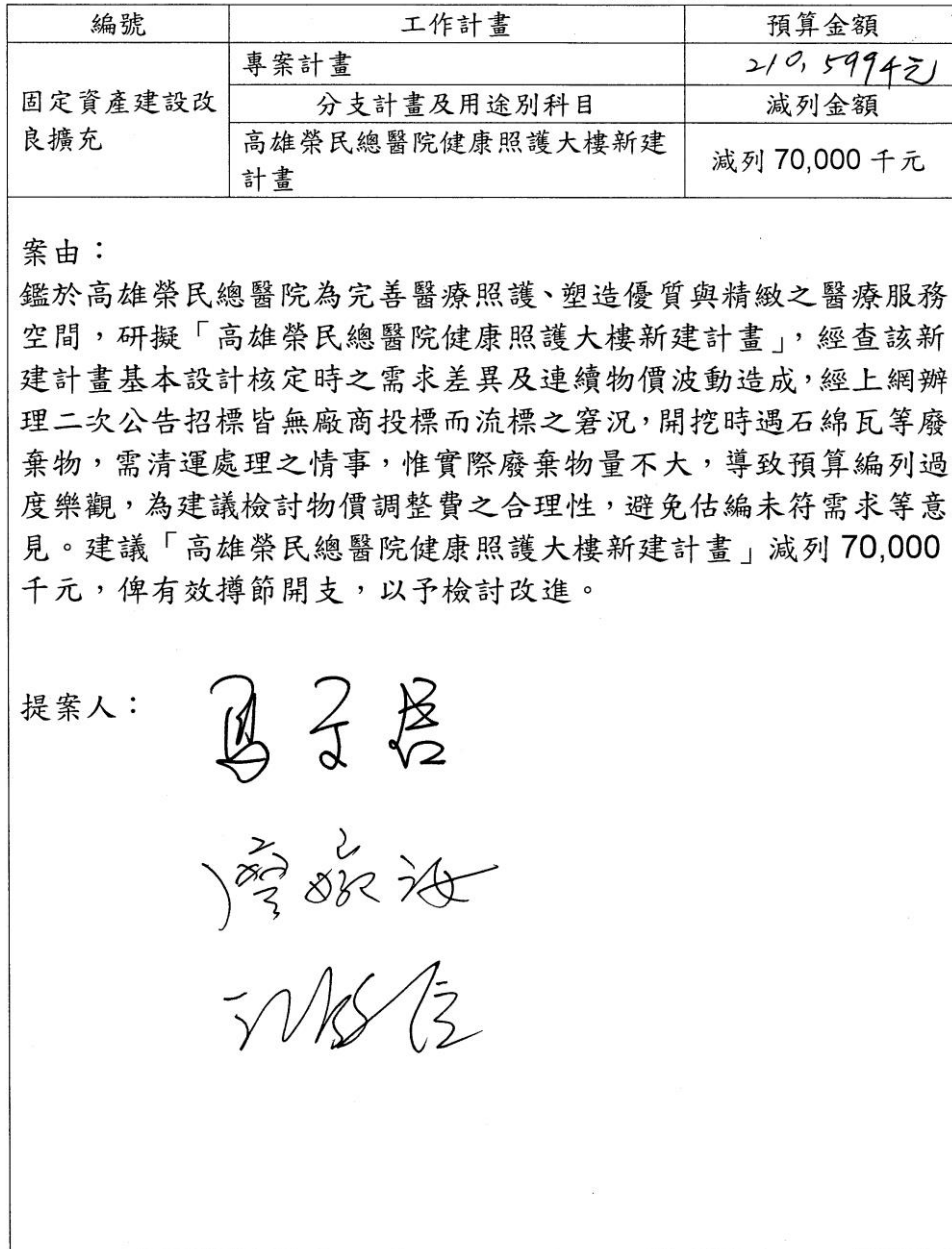 編號 工作計畫 預算金額
專案計畫 210,599千元
固定資產建設改 分支計畫及用途別科目 減列金額
良擴充 高雄榮民總醫院健康照護大樓新建 減列 70,000 千元
計畫
案由：
鑑於高雄榮民總醫院為完善醫療照護、塑造優質與精緻之醫療服務
空間，研擬「高雄榮民總醫院健康照護大樓新建計畫」，經查該新
建計畫基本設計核定時之需求差異及連續物價波動造成，經上網辦
理二次公告招標皆無廠商投標而流標之窘況，開挖時遇石綿瓦等廢
棄物，需清運處理之情事，惟實際廢棄物量不大，導致預算編列過
度樂觀，為建議檢討物價調整費之合理性，避免估編未符需求等意
見。建議「高雄榮民總醫院健康照護大樓新建計畫」減列 70,000
千元，俾有效撙節開支，以予檢討改進。
提案人：
馬文君